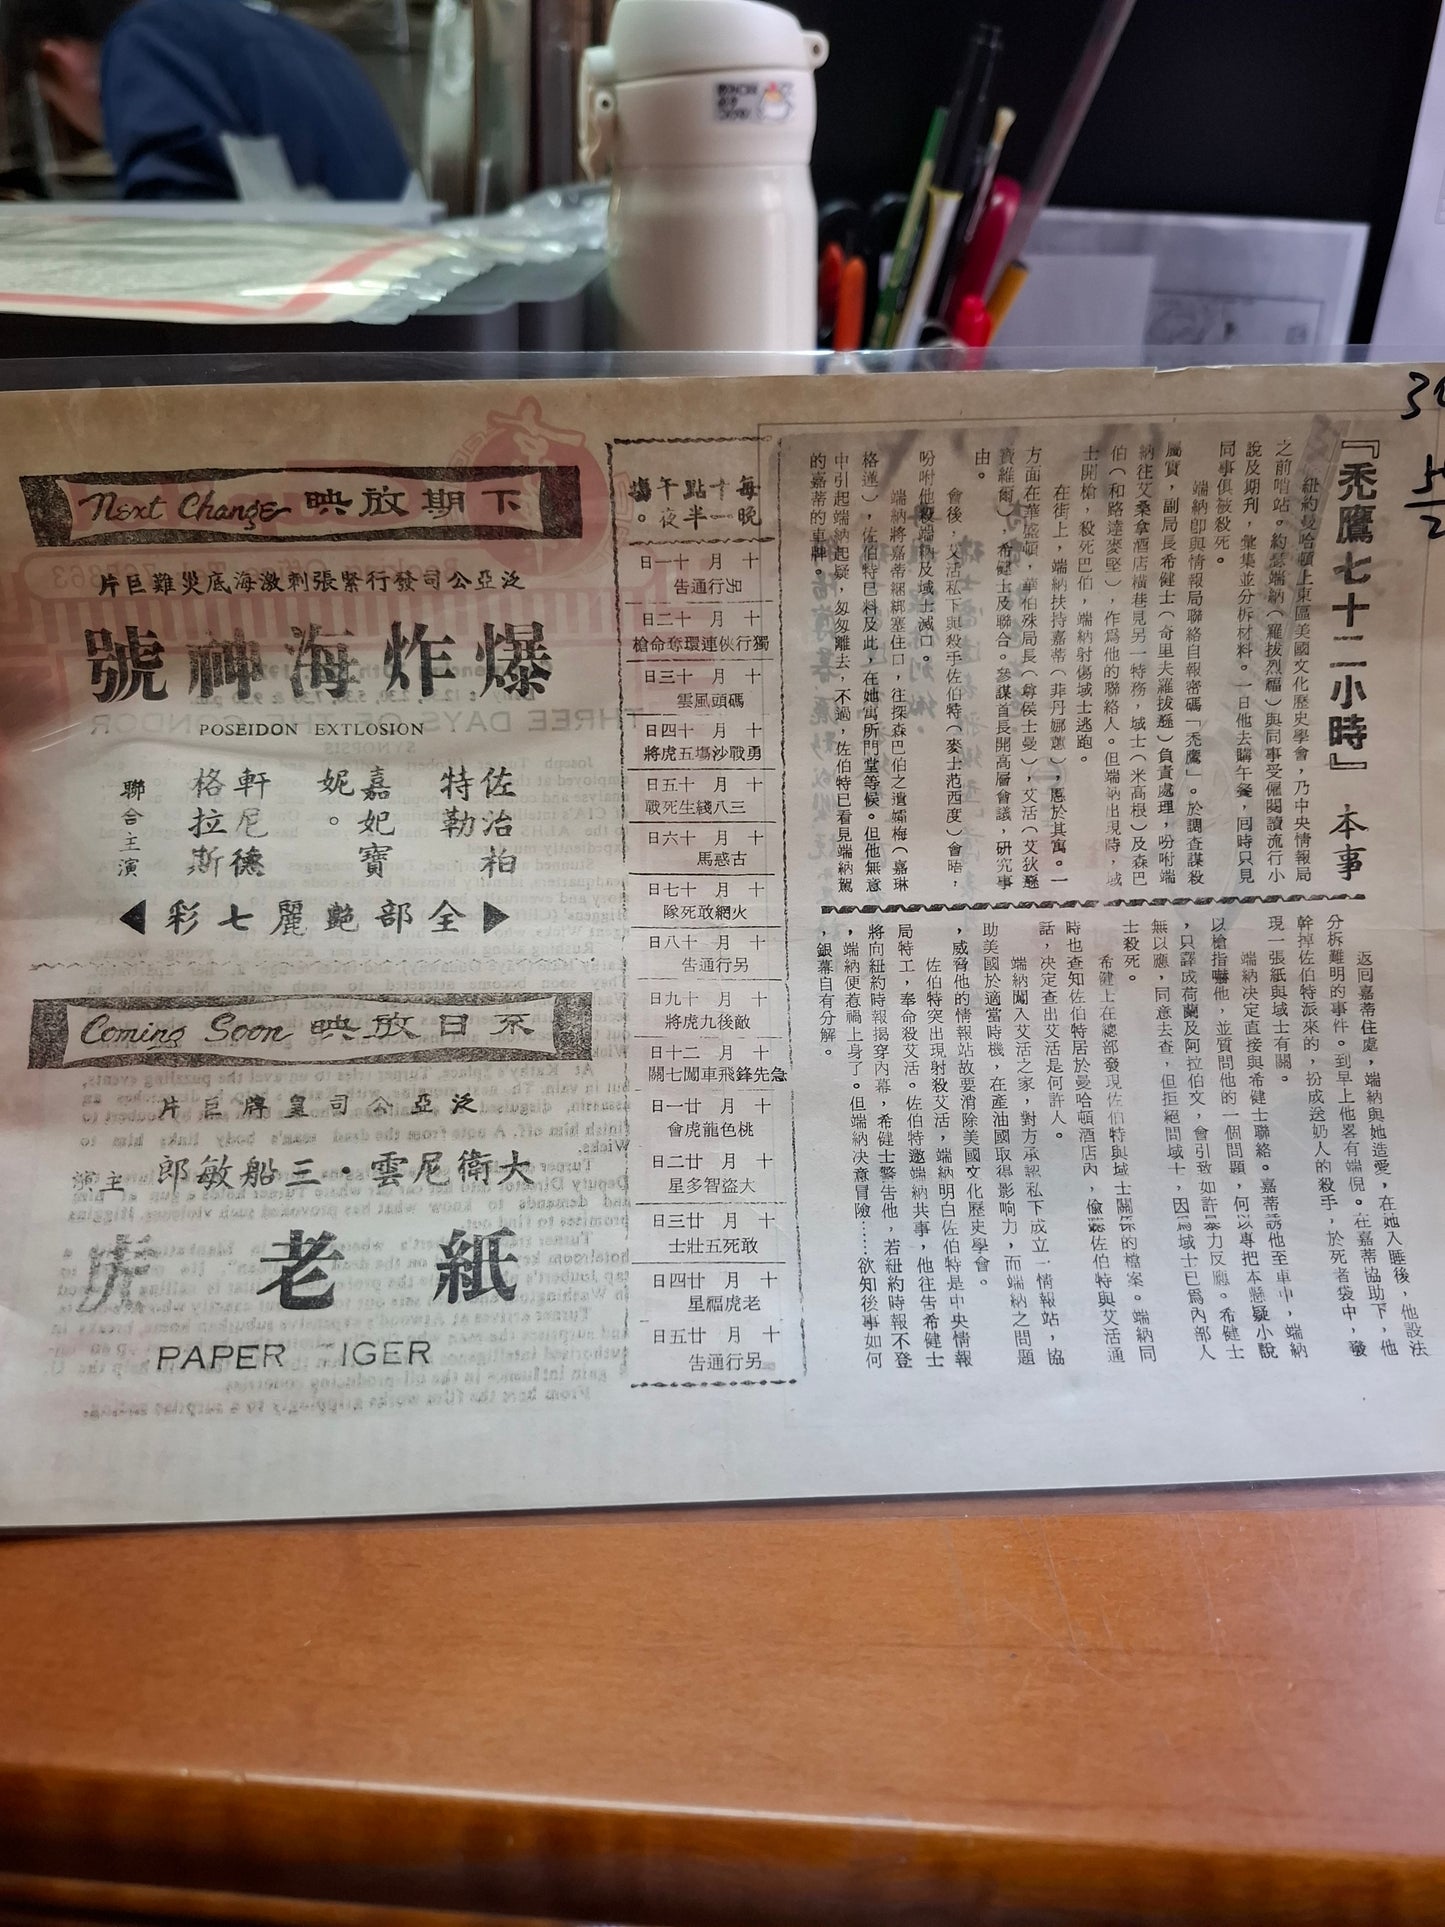 『禿鷹七十二小時』 本事
紐約曼哈頓上東區美國文化歷史學會，乃中央情報局
之前哨站。約瑟端納（羅拔烈福）與同事受僱閱讀流行小
說及期刊，彙集並分析材料。一日他去購午餐，回時只見
同事俱被殺死。
端納卽與情報局聯絡自報密碼「禿鷹」。於調查謀殺
屬實，副局長希健士（奇里夫羅拔遜）負責處理，吩咐端
納往艾桑拿酒店橫巷見另一特務，域士（米高根）及森巴
伯（和路達麥堅），作爲他的聯絡人。但端納出現時，域
士開槍，殺死巴伯，端納射傷域士逃跑。
在街上，端納扶持嘉蒂（菲丹娜蕙），匿於其寓。一
方面在華盛頓，華伯殊局長（尊侯士曼），艾活（艾狄遜
寶維爾），希健士及聯合。參謀首長開高層會議，研究事
由。
會後，艾活私下與殺手佐伯特（麥士范西度）會晤，
吩咐他殺端納及域士滅口。
端納將嘉蒂綑綁塞住口，往探森巴伯之遺孀梅（嘉琳
格遜），佐伯特巴料及此，在她寓所門堂等候。但他無意
中引起端納起疑，匆匆離去，不過，佐伯特已看見端納駕
的嘉蒂的車牌。
返回嘉蒂住處，端納與她造愛，在她入睡後，他設法
分析難明的事件。到早上他畧有端倪。在嘉蒂協助下，他
幹掉佐伯特派來的，扮成送奶人的殺手，於死者袋中，發
現一張紙與域士有關。
端納决定直接與希健士聯絡。嘉蒂誘他至車中，端納
以槍指嚇他，並質問他的一個問題，何以專把本懸疑小說
，只譯成荷蘭及阿拉伯文，會引致如許暴力反應。希健士
無以應，同意去查，但拒絕問域士，因爲域士已爲內部人
士殺死。
希健士在總部發現佐伯特與域士關係的檔案。端納同
時也查知佐伯特居於曼哈頓酒店內，偸聽佐伯特與艾活通
話，决定查出艾活是何許人。
端納闖入艾活之家，對方承認私下成立一情報站，協
助美國於適當時機，在產油國取得影响力，而端納之問題
，威脅他的情報站故要消除美國文化歷史學會。
佐伯特突出現射殺艾活，端納明白佐伯特是中央情報
局特工，奉命殺艾活。佐伯特邀端納共事，他往告希健士
將向紐約時報揭穿內幕，希健士警告他，若紐約時報不登
，端納便惹禍上身了。但端納决意冒險……欲知後事如何
，銀幕自有分解。
每晚
十一
點半
午夜
場。
十月十一日
另行通告
十月十二日
獨行俠連環奪命槍
十月十三日
碼頭風雲
十月十四日
勇戰沙塲五虎將
十月十五日
三八綫生死戰
十月十六日
古惑馬
十月十七日
火網敢死隊
十月十八日
另行通告
十月十九日
敵後九虎將
十月二十日
急先鋒飛車闖七關
十月廿一日
桃色龍虎會
十月廿二日
大盜智多星
十月廿三日
敢死五壯士
十月廿四日
老虎福星
十月廿五日
另行通告
下期放映 Next Change
泛亞公司發行緊張刺激海底災難巨片
爆炸海神號
POSEIDON EXTLOSION
佐治柏
特勒
嘉妃寶
妮。
軒尼德
格拉斯
聯合主演
全部艷麗七彩
不日放映 Coming Soon
泛亞公司皇牌巨片
大衛尼雲·三船敏郎 主演
紙老虎
PAPER IGER